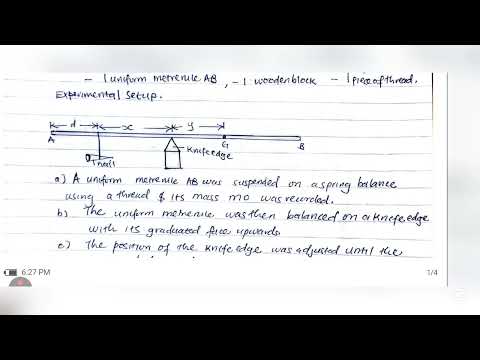 - 1 uniform metrerule AB, - 1 wooden block - 1 piece of thread.
Experimental Setup.
d x y
A G B
Knife edge
a) A uniform metrerule AB was suspended on a spring balance
using a thread & its mass mo was recorded.
b) The uniform metrerule was then balanced on a knife edge
with its graduated face upwards
c) The position of the knife edge was adjusted until the
6:27 PM 1/4